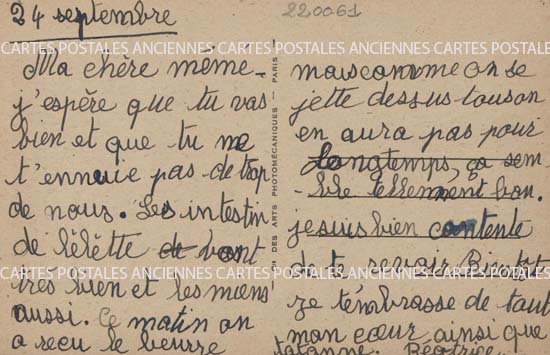 24 septembre
220061
CARTES POSTALES ANCIENNES CARTES POSTALES ANCIENNES CARTES POSTALES
Ma chère mémé
j'espère que tu vas
bien et que tu ne
t'ennuie pas de trop
de nous. Les intestin
de lélétte de vont
très bien et les miens
aussi. Ce matin on
a reçu le beurre
DES ARTS PHOTOMÉCANIQUES - PARIS
mais comme on se
jette dessus tous on
en aura pas pour
longtemps, ça sem
-ble tellement bon.
je suis bien contente
de te revoir Bientot
je t'émbrasse de tout
mon cœur ainsi que
tatanne. Béatrice
CARTES POSTALES ANCIENNES CARTES POSTALES ANCIENNES CARTES POSTALES